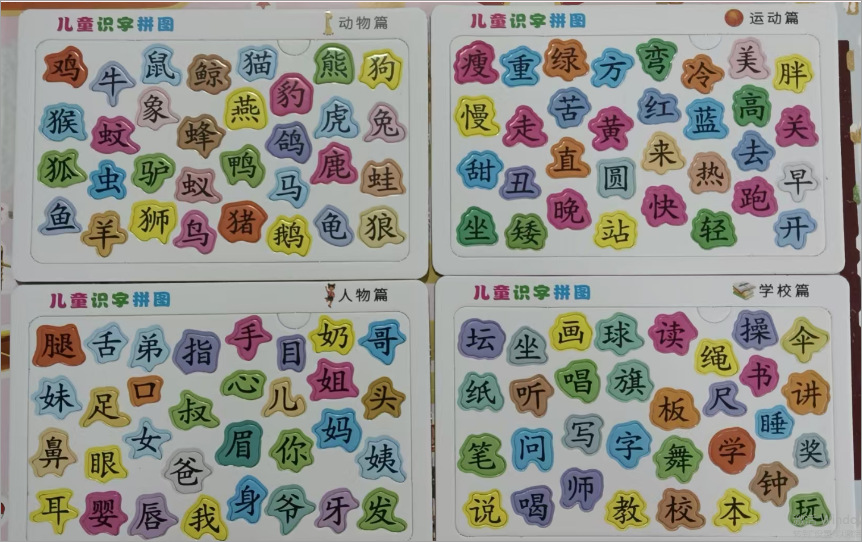 儿童识字拼图 动物篇
鸡 牛 鼠 鲸 猫 豹 熊 狗
猴 蚊 象 蜂 燕 鸽 虎 兔
狐 虫 驴 蚁 鸭 马 鹿 蛙
鱼 羊 狮 鸟 猪 鹅 龟 狼
儿童识字拼图 运动篇
瘦 重 绿 方 弯 冷 美 胖
慢 走 苦 黄 红 蓝 高 关
甜 丑 直 圆 来 热 去 早
坐 矮 晚 站 快 轻 跑 开
儿童识字拼图 人物篇
腿 舌 弟 指 手 目 奶 哥
妹 足 口 叔 心 儿 姐 头
鼻 眼 女 爸 眉 你 妈 姨
耳 婴 唇 我 身 爷 牙 发
儿童识字拼图 学校篇
坛 坐 画 球 读 绳 操 伞
纸 听 唱 旗 板 尺 书 讲
笔 问 写 字 舞 学 睡 奖
说 喝 师 教 校 本 钟 玩